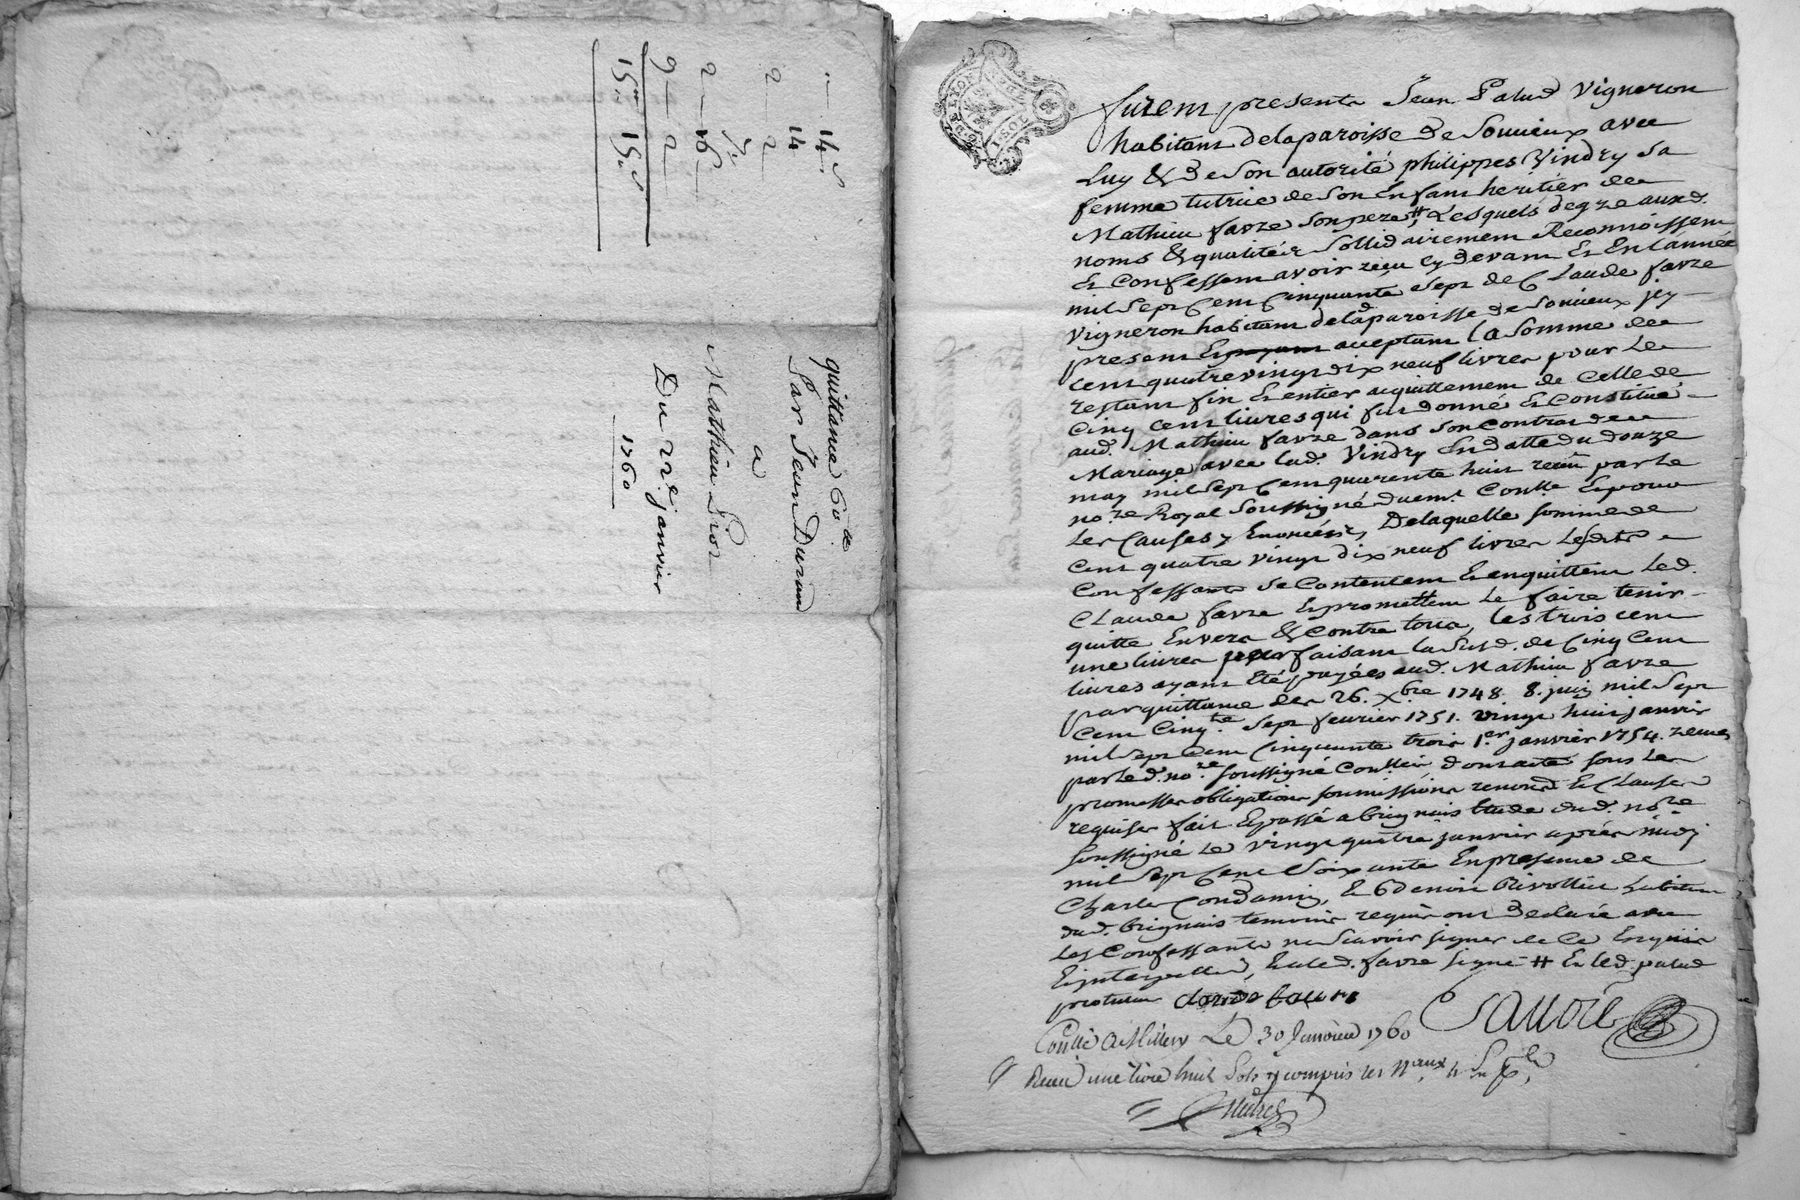 14 s
14
2 2
7
2 16
9 2
15 lt 15 s
quittance 60 lt
Par Jean Durand
a
Mathieu Pior
Du 22e janvier
1760
GDE LYON
furent presents Jean Palud Vigneron
habitant delaparoisse de Soucieux avec
Luy & de son autorité philippes Vindry sa
femme tutrice de son Enfant heritier de
Mathieu favre son pere # Lesquels degre auxd.
noms & qualitéz sollidairement Reconnoissent
Et Confessent avoir reçu cy devant Et En Lannée
mil Sept Cent Cinquante Sept de Claude favre
Vigneron habitant deladparoisse de Soucieux jcy
present acceptant La somme de
cent quatrevingt dix neuf livres pour Le
restant fin Et entier aquittement de Celle de
Cinq cent livres qui fut donné Et Constitué
aud. Mathieu favre dans son Contrat de
Mariage avec lad. Vindry En datte du douze
may mil Sept Cent quarente huit reçu par le
no.re Royal Soussigné duemt Contle Et pour
Les Causes y Enoncées, Delaquelle somme de
Cent quatre vingt dix neuf livres Lesdts
Confessants se Contentent Et enquittent Led.
Claude favre Et promettent Le faire tenir
quitte Envers & Contre tous, Les trois cent
une livres parfaisant La Susd. de Cinq Cent
livres ayant Eté payées aud. Mathieu favre
par quittance des 26. Xbre 1748. 8. juin mil Sept
Cent Cinqte Sept fevrier 1751. vingt huit janvier
mil Sept Cent Cinquante trois 1.er janvier 1754. recues
par led. no.re soussigné Conttes dont acte sous Les
promesses obligations soumissions renond Et Clauses
requises fait Et passé a brignais Etude dud. no.re
Soussigné Le vingt quatre janvier après midy
mil Sept Cent Soixante En presence de
Charles Condamin, Et Benoit Rivollier habitans
dud. brignais temoins requis ont declaré avec
Les Confessants ne Scavoir signer de Ce Enquis
Et interpellés, Et led. favre signé # Et led. palud
protuteur claude favre
Cottle A Millery Le 30 Janvier 1760
Reçu une livre huit Sols y compris les Nxaux 4 s. p. l.